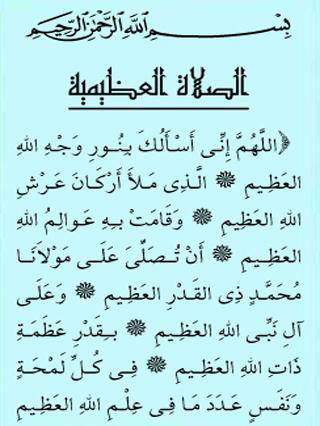 بِسْمِ اللَّهِ الرَّحْمَٰنِ الرَّحِيمِ
الصلاة العظيمية
﴿اللَّهُمَّ إِنِّى أَسْأَلُكَ بِنُورِ وَجْهِ اللهِ
العَظِيمِ ۞ الَّذِى مَلَأَ أَرْكَانَ عَرْشِ
اللهِ العَظِيمِ ۞ وَقَامَتْ بِهِ عَوَالِمُ اللهِ
العَظِيمِ ۞ أَنْ تُصَلِّىَ عَلَى مَوْلَانَا
مُحَمَّدٍ ذِى القَدْرِ العَظِيمِ ۞ وَعَلَى
آلِ نَبِّى اللهِ العَظِيمِ ۞ بِقَدْرِ عَظَمَةِ
ذَاتِ اللهِ العَظِيمِ ۞ فِى كُلِّ لَمْحَةٍ
وَنَفَسٍ عَدَدَ مَا فِى عِلْمِ اللهِ العَظِيمِ